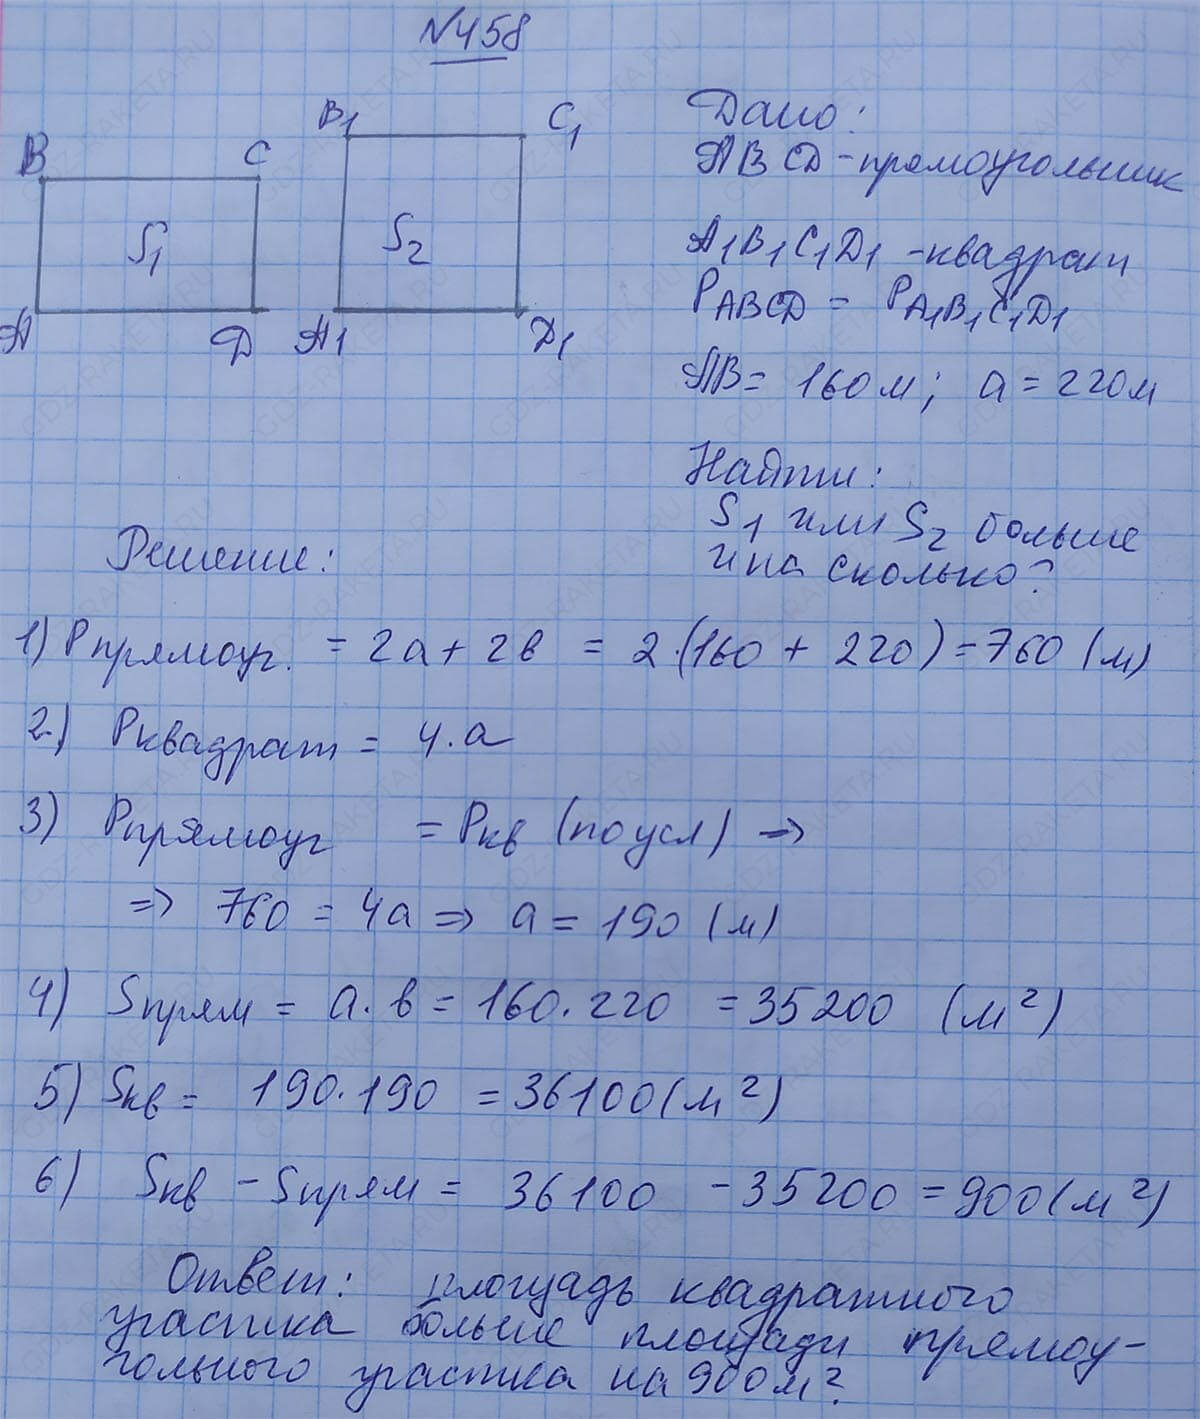 N458
B C B1 C1
S1 S2
A D A1 D1
Дано:
ABCD - прямоугольник
A1B1C1D1 - квадрат
PABCD = PA1B1C1D1
AB = 160 м; a = 220 м
Найти:
S1 или S2 больше
и на сколько?
Решение:
1) Pпрямоуг. = 2a + 2в = 2·(160 + 220) = 760 (м)
2) Pквадрат = 4·a
3) Pпрямоуг = Pкв (по усл) =>
=> 760 = 4a => a = 190 (м)
4) Sпрям = a·в = 160·220 = 35200 (м²)
5) Sкв = 190·190 = 36100 (м²)
6) Sкв - Sпрям = 36100 - 35200 = 900 (м²)
Ответ: площадь квадратного
участка больше площади прямоу-
гольного участка на 900 м².